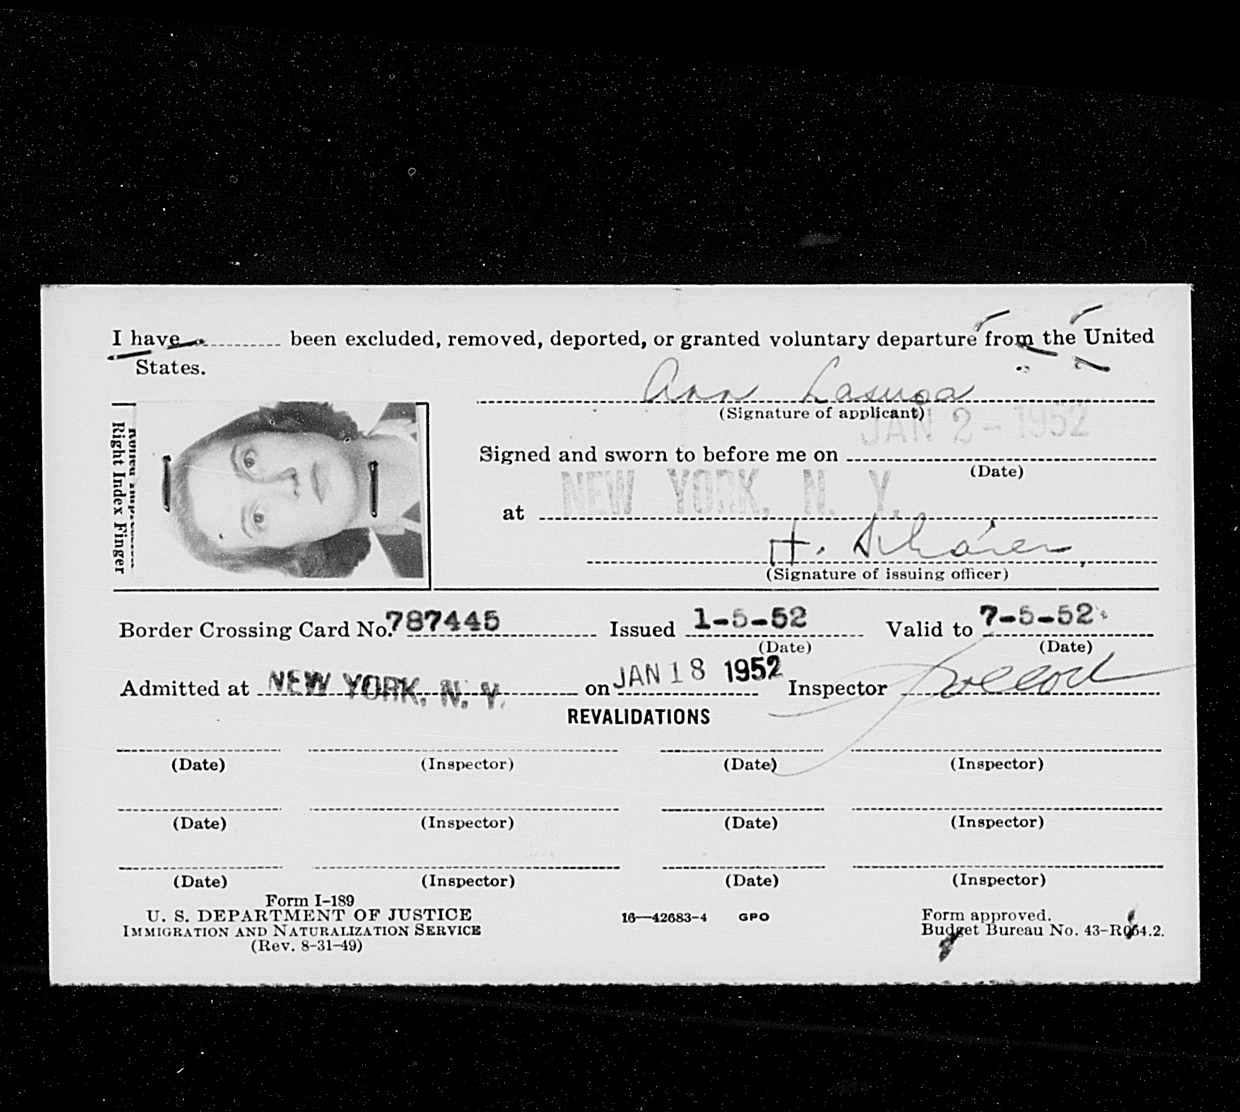 I have ........ been excluded, removed, deported, or granted voluntary departure from the United
States.
Ann Lasusa
(Signature of applicant)
JAN 2 - 1952
Signed and sworn to before me on
(Date)
NEW YORK, N. Y.
at
(Signature of issuing officer)
Right Index Finger
Border Crossing Card No. 787445 Issued 1-5-52 Valid to 7-5-52
(Date) (Date)
Admitted at NEW YORK, N. Y. on JAN 18 1952 Inspector
REVALIDATIONS
(Date) (Inspector) (Date) (Inspector)
(Date) (Inspector) (Date) (Inspector)
(Date) (Inspector) (Date) (Inspector)
Form I-189
U. S. DEPARTMENT OF JUSTICE
IMMIGRATION AND NATURALIZATION SERVICE
(Rev. 8-31-49)
16—42683-4 GPO
Form approved.
Budget Bureau No. 43-R064.2.